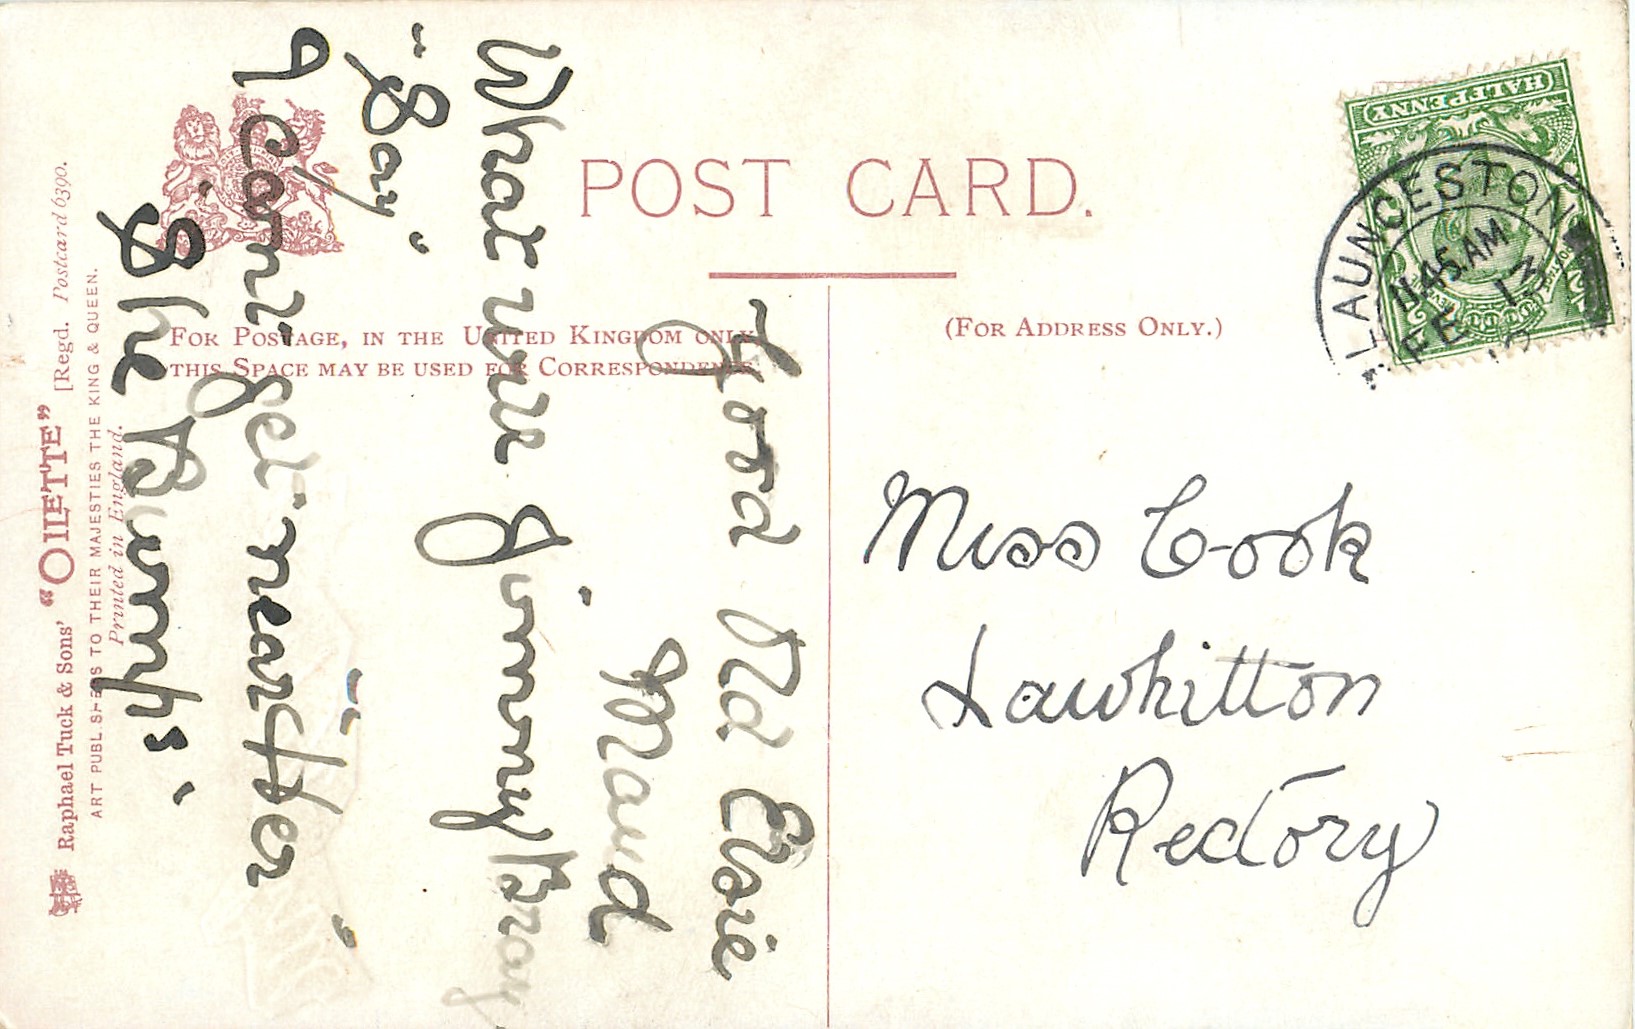 POST CARD.
FOR POSTAGE, IN THE UNITED KINGDOM ONLY,
THIS SPACE MAY BE USED FOR CORRESPONDENCE.
(FOR ADDRESS ONLY.)
HALFPENNY
LAUNCESTON
11.45 AM
FE 13
Miss Cook
Lawhitton
Rectory
Good Old Elsie
Maud
What Jimmy Bray
"Say"
I can't get "nearther"
"She Bumps"
Raphael Tuck & Sons' "OILETTE" [Regd. Postcard 6390.
ART PUBLISHERS TO THEIR MAJESTIES THE KING & QUEEN.
Printed in England.